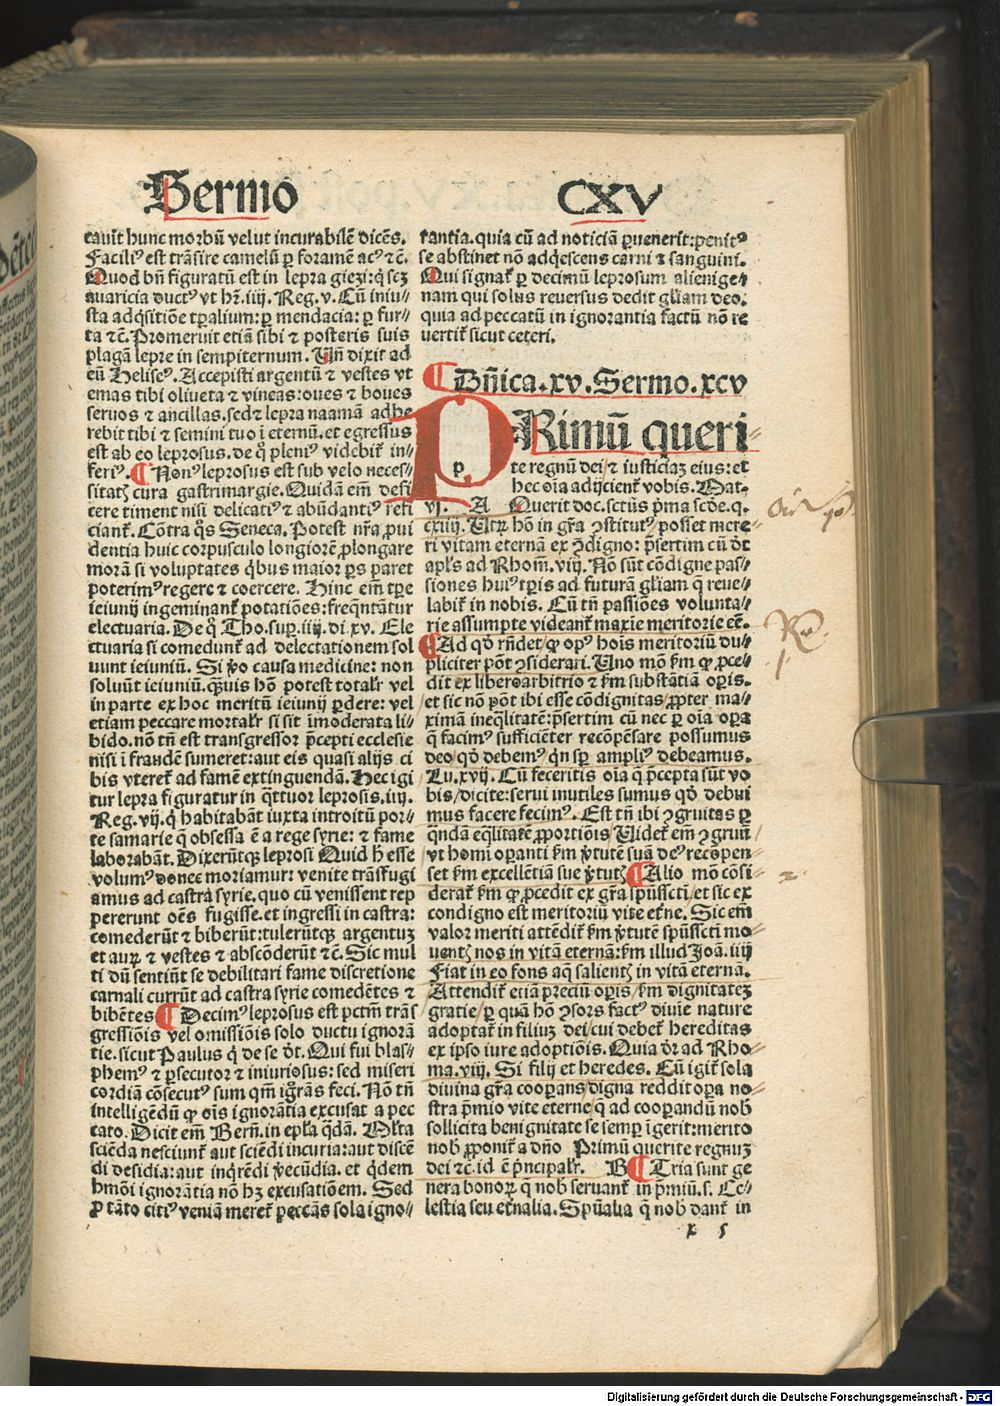 Sermo
CXV
cauit hunc morbū velut incurabilē dicēs.
Facilꝰ est trāsire camelū ꝑ foramē acꝰ ⁊c̄.
Quod bn̄ figuratū est in lepra giezi: q̇ scꝫ
auaricia ductꝰ vt hr̄. iiij. Reg. v. Cū iniu⸗
sta adq̇sitiōe tꝑalium: ꝑ mendacia: ꝑ fur⸗
ta ⁊c̄. Promeruit etiā sibi ⁊ posteris suis
plagā lepre in sempiternum. Un̄ dixit ad
eū Heliseꝰ. Accepisti argentū ⁊ vestes vt
emas tibi oliueta ⁊ vineas: oues ⁊ boues
seruos ⁊ ancillas. sed ⁊ lepra naamā adhe
rebit tibi ⁊ semini tuo ī eternū. et egressus
est ab eo leprosus. de q̊ pleniꝰ videbit̉ in⸗
feriꝰ. ¶ Nonꝰ leprosus est sub velo neces⸗
sitatꝭ cura gastrimargie. Quidā em̄ defi
cere timent nisi delicatiꝰ ⁊ abūdantiꝰ refi
ciant̉. Cōtra q̊s Seneca. Potest nr̄a ꝓui
dentia huic corpusculo longiorē ꝓlongare
morā si voluptates q̇bus maior ꝑs paret
poterimꝰ regere ⁊ coercere. Hinc em̄ tꝑe
ieiunij ingeminant̉ potatiōes: freq̄ntātur
electuaria. De q̊ Tho. suꝑ. iiij. di. xv. Ele
ctuaria si comedunt̉ ad delectationem sol
uunt ieiuniū. Si ꝟo causa medicine: non
soluūt ieiuniū. q̄uis hō potest totalr̄ vel
in parte ex hoc meritū ieiunij ꝑdere: vel
etiam peccare mortalr̄ si sit īmoderata li⸗
bido. nō tn̄ est transgressor p̄cepti ecclesie
nisi ī fraudē sumeret: aut eis quasi alijs ci
bis vteret̉ ad famē extinguendā. Hec igi
tur lepra figuratur in q̈ttuor leprosis. iiij.
Reg. vij. q̇ habitabāt iuxta introitū por⸗
te samarie q̄ obsessa ē a rege syrie: ⁊ fame
laborabāt. Dixerūtqꝫ leprosi Quid h̄ esse
volumꝰ donec moriamur: venite trāsfugi
amus ad castra syrie. quo cū venissent rep
pererunt oēs fugisse. et ingressi in castra:
comederūt ⁊ biberūt: tulerūtqꝫ argentuꝫ
et auꝝ ⁊ vestes ⁊ abscōderūt ⁊c̄. Sic mul
ti dū sentiūt se debilitari fame discretione
carnali currūt ad castra syrie comedētes ⁊
bibētes ¶ Decimꝰ leprosus est pctm̄ trās
gressiōis vel omissiōis solo ductu ignorā
tie. sicut Paulus q̇ de se dr̄t. Qui fui blas⸗
phemꝰ ⁊ ꝑsecutor ⁊ iniuriosus: sed miseri
cordiā cōsecutꝰ sum qm̄ igrās feci. Nō tn̄
intelligēdū ꝙ oīs ignorātia excusat a pec
cato. Dicit em̄ Bern̄. in epl̄a q̄dā. Ml̄ta
sciēda nesciunt̉ aut sciēdi incuria: aut discē
di desidia: aut inq̇rēdi ꝟecūdia. et q̇dem
hmōi ignorātia nō hꝫ excusatiōem. Sed
ꝓ tāto citiꝰ veniā meret̉ peccās sola igno⸗
rantia. quia cū ad noticiā ꝑuenerit: penitꝰ
se abstinet nō adq̇escens carni ⁊ sanguini.
Qui signat̉ ꝑ decimū leprosum alienige⸗
nam qui solus reuersus dedit gl̄iam deo.
quia ad peccatū in ignorantia factū nō re
uertit̉ sicut ceteri.
¶ Dn̄ica. xv. Sermo. xcv
PRimū queri⸗
te regnū dei / ⁊ iusticiaꝫ eius: et
hec oīa adijcient̉ vobis. Mat.
vj. A Querit doc. sctūs p̄ma scd̄e. q.
cxiiij. Utꝝ hō in gr̄a ꝯstitutꝰ posset mere⸗
ri vitam eternā ex ꝯdigno: p̄sertim cū dr̄t
apl̄s ad Rhom̄. viij. Nō sūt cōdigne pas⸗
siones huiꝰ tꝑis ad futurā gl̄iam q̄ reue⸗
labit̉ in nobis. Cū tn̄ passiōes volunta⸗
rie assumpte videant̉ maxie meritorie ee̅.
¶ Ad qd̄ rn̄det / ꝙ opꝰ hoīs meritoriū du⸗
pliciter pōt ꝯsiderari. Uno mō ẜm ꝙ ꝓce⸗
dit ex libero arbitrio ⁊ ẜm substātiā oꝑis.
et sic nō pōt ibi esse cōdignitas / ꝓpter ma⸗
ximā ineq̄litatē: p̄sertim cū nec ꝑ oīa oꝑa
q̄ facimꝰ sufficiēter recōpēsare possumus
deo qd̄ debemꝰ / qn̄ sꝑ ampliꝰ debeamus.
Lu. xvij. Cū feceritis oīa q̄ p̄cepta sūt vo
bis / dicite: serui inutiles sumus qd̄ debui
mus facere fecimꝰ. Est tn̄ ibi ꝯgruitas ꝑ
q̄ndā eq̄litatē ꝓportiōis Uidet̉ em̄ ꝯgruū
vt homi oꝑanti ẜm ꝟtutē suā deꝰ recōpen⸗
set ẜm excellētiā sue ꝟtutꝭ ¶ Alio mō cōsi⸗
derat̉ ẜm ꝙ ꝓcedit ex gr̄a spūsscti / et sic ex
condigno est meritoriū vite et̉ne. Sic em̄
valor meriti attēdit̉ ẜm ꝟtutē spūsscti mo⸗
uentꝭ nos in vitā eternā: ẜm illud Joā. iiij
Fiat in eo fons aq̄ salientꝭ in vitā eternā.
Attendit̉ etiā preciū oꝑis / ẜm dignitateꝫ
gratie / ꝑ quā hō ꝯsors factꝰ diuie nature
adoptat̉ in filiuꝫ dei / cui debet̉ hereditas
ex ipso iure adoptiōis. Quia dr̄ ad Rho⸗
ma. viij. Si filij et heredes. Cū igit̉ sola
diuina gr̄a cooꝑans / digna reddit oꝑa no⸗
stra p̄mio vite eterne / q̄ ad cooꝑandū nob̄
sollicita benignitate se semꝑ īgerit: merito
nob̄ ꝓponit̉ a dn̄o Primū querite regnuꝫ
dei ⁊c̄. id ē p̄ncipalr̄. B ¶ Tria sunt ge
nera bonoꝝ q̄ nob̄ seruant̉ in p̄miū. s. Ce⸗
lestia seu et̉nalia. Spūalia q̄ nob̄ dant̉ in
x 5
Digitalisierung gefördert durch die Deutsche Forschungsgemeinschaft - DFG